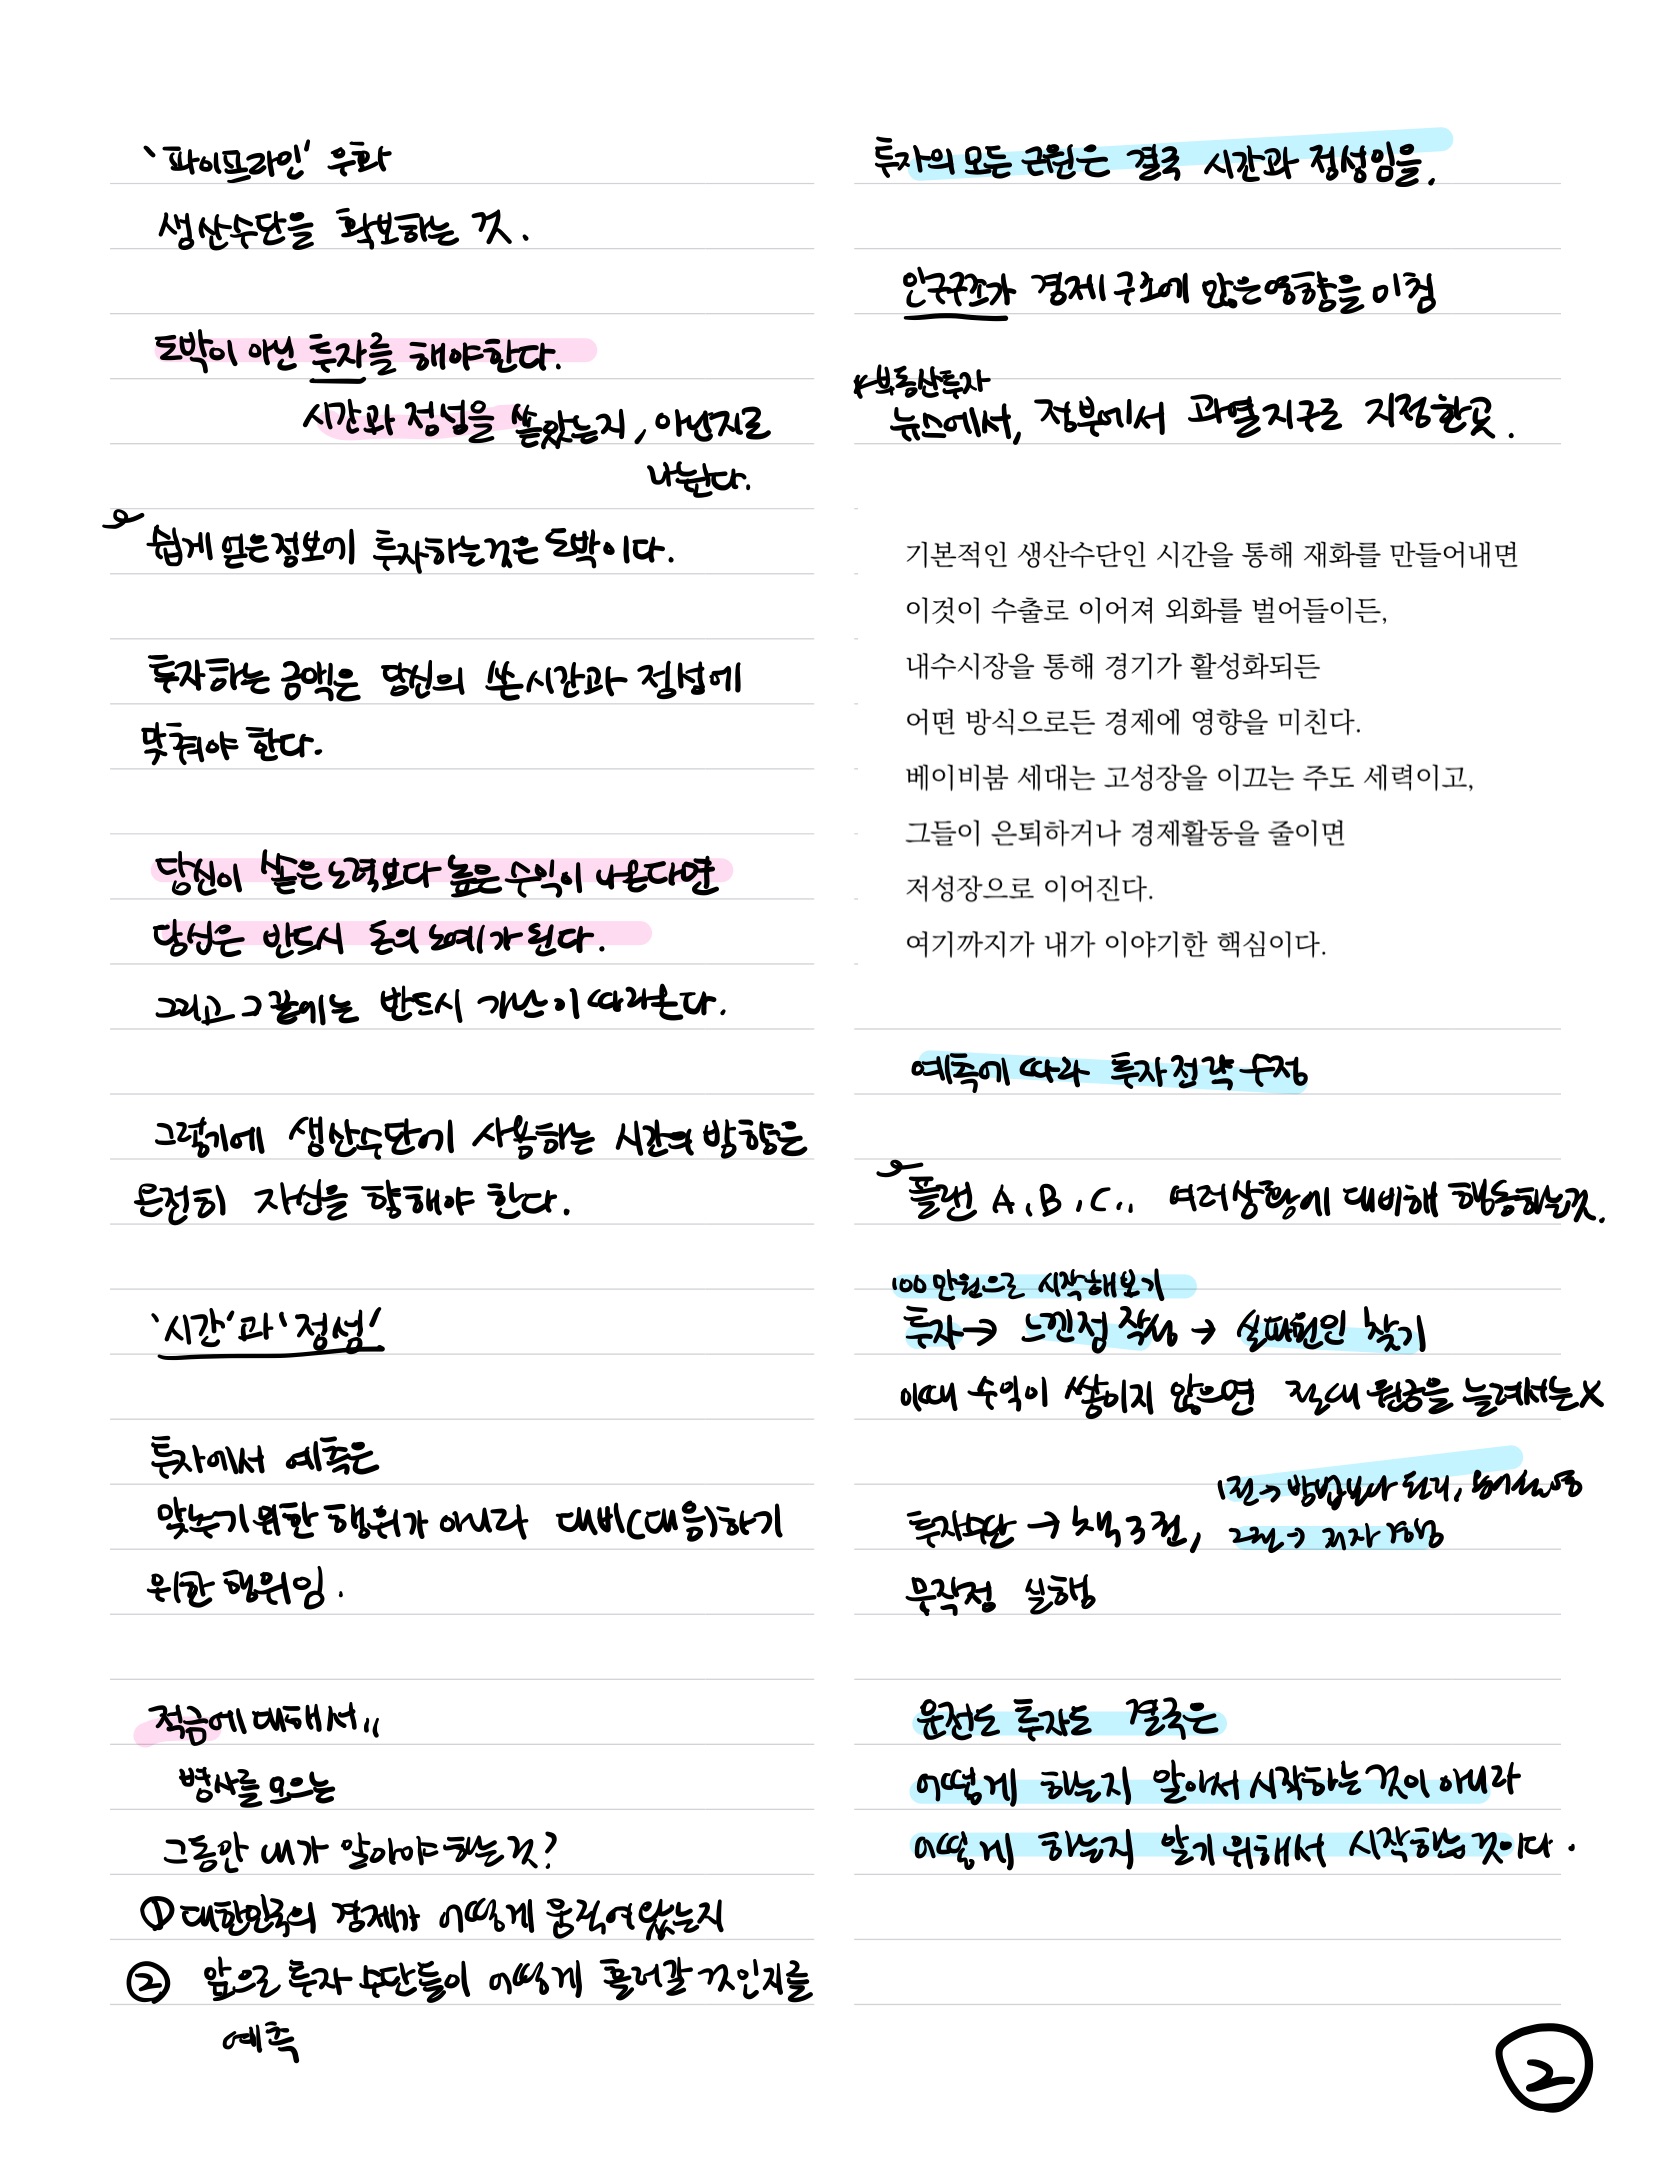 '파이프라인' 우화
생산수단을 확보하는 것.
도박이 아닌 투자를 해야한다.
시간과 정성을 쏟았는지, 아닌지로
나뉜다.
쉽게 얻은정보에 투자하는것은 도박이다.
투자하는 금액은 당신의 쏟은 시간과 정성에
맞춰야 한다.
당신이 쏟은 노력보다 높은 수익이 나온다면
당신은 반드시 돈의 노예가 된다.
그리고 그 끝에는 반드시 가난이 따라온다.
그렇기에 생산수단에 사용하는 시간의 방향은
온전히 자신을 향해야 한다.
'시간'과 '정성'
투자에서 예측은
맞추기 위한 행위가 아니라 대비(대응)하기
위한 행위임.
적금에 대해서..
병사를 모으는
그동안 내가 알아야 하는것?
① 대한민국의 경제가 어떻게 움직여왔는지
② 앞으로 투자 수단들이 어떻게 흘러갈 것인지를
예측
투자의 모든 근원은 결국 시간과 정성임을.
인구구조가 경제구조에 많은영향을 미침
*부동산투자
뉴스에서, 정부에서 과열지구로 지정한곳.
기본적인 생산수단인 시간을 통해 재화를 만들어내면
이것이 수출로 이어져 외화를 벌어들이든,
내수시장을 통해 경기가 활성화되든
어떤 방식으로든 경제에 영향을 미친다.
베이비붐 세대는 고성장을 이끄는 주도 세력이고,
그들이 은퇴하거나 경제활동을 줄이면
저성장으로 이어진다.
여기까지가 내가 이야기한 핵심이다.
예측에 따라 투자전략 수정
플랜 A, B, C.. 여러상황에 대비해 행동하는것.
100만원으로 시작해보기
투자 → 느낀점 작성 → 실패원인 찾기
이때 수익이 쌓이지 않으면 절대 원금을 늘려서는 X
1권→ 방법보다 원리,
투자수단 → 책 3권, 2권→ 저자 경험
무작정 실행
운전도 투자도 결국은
어떻게 하는지 알아서 시작하는 것이 아니라
어떻게 하는지 알기 위해서 시작하는 것이다.
2